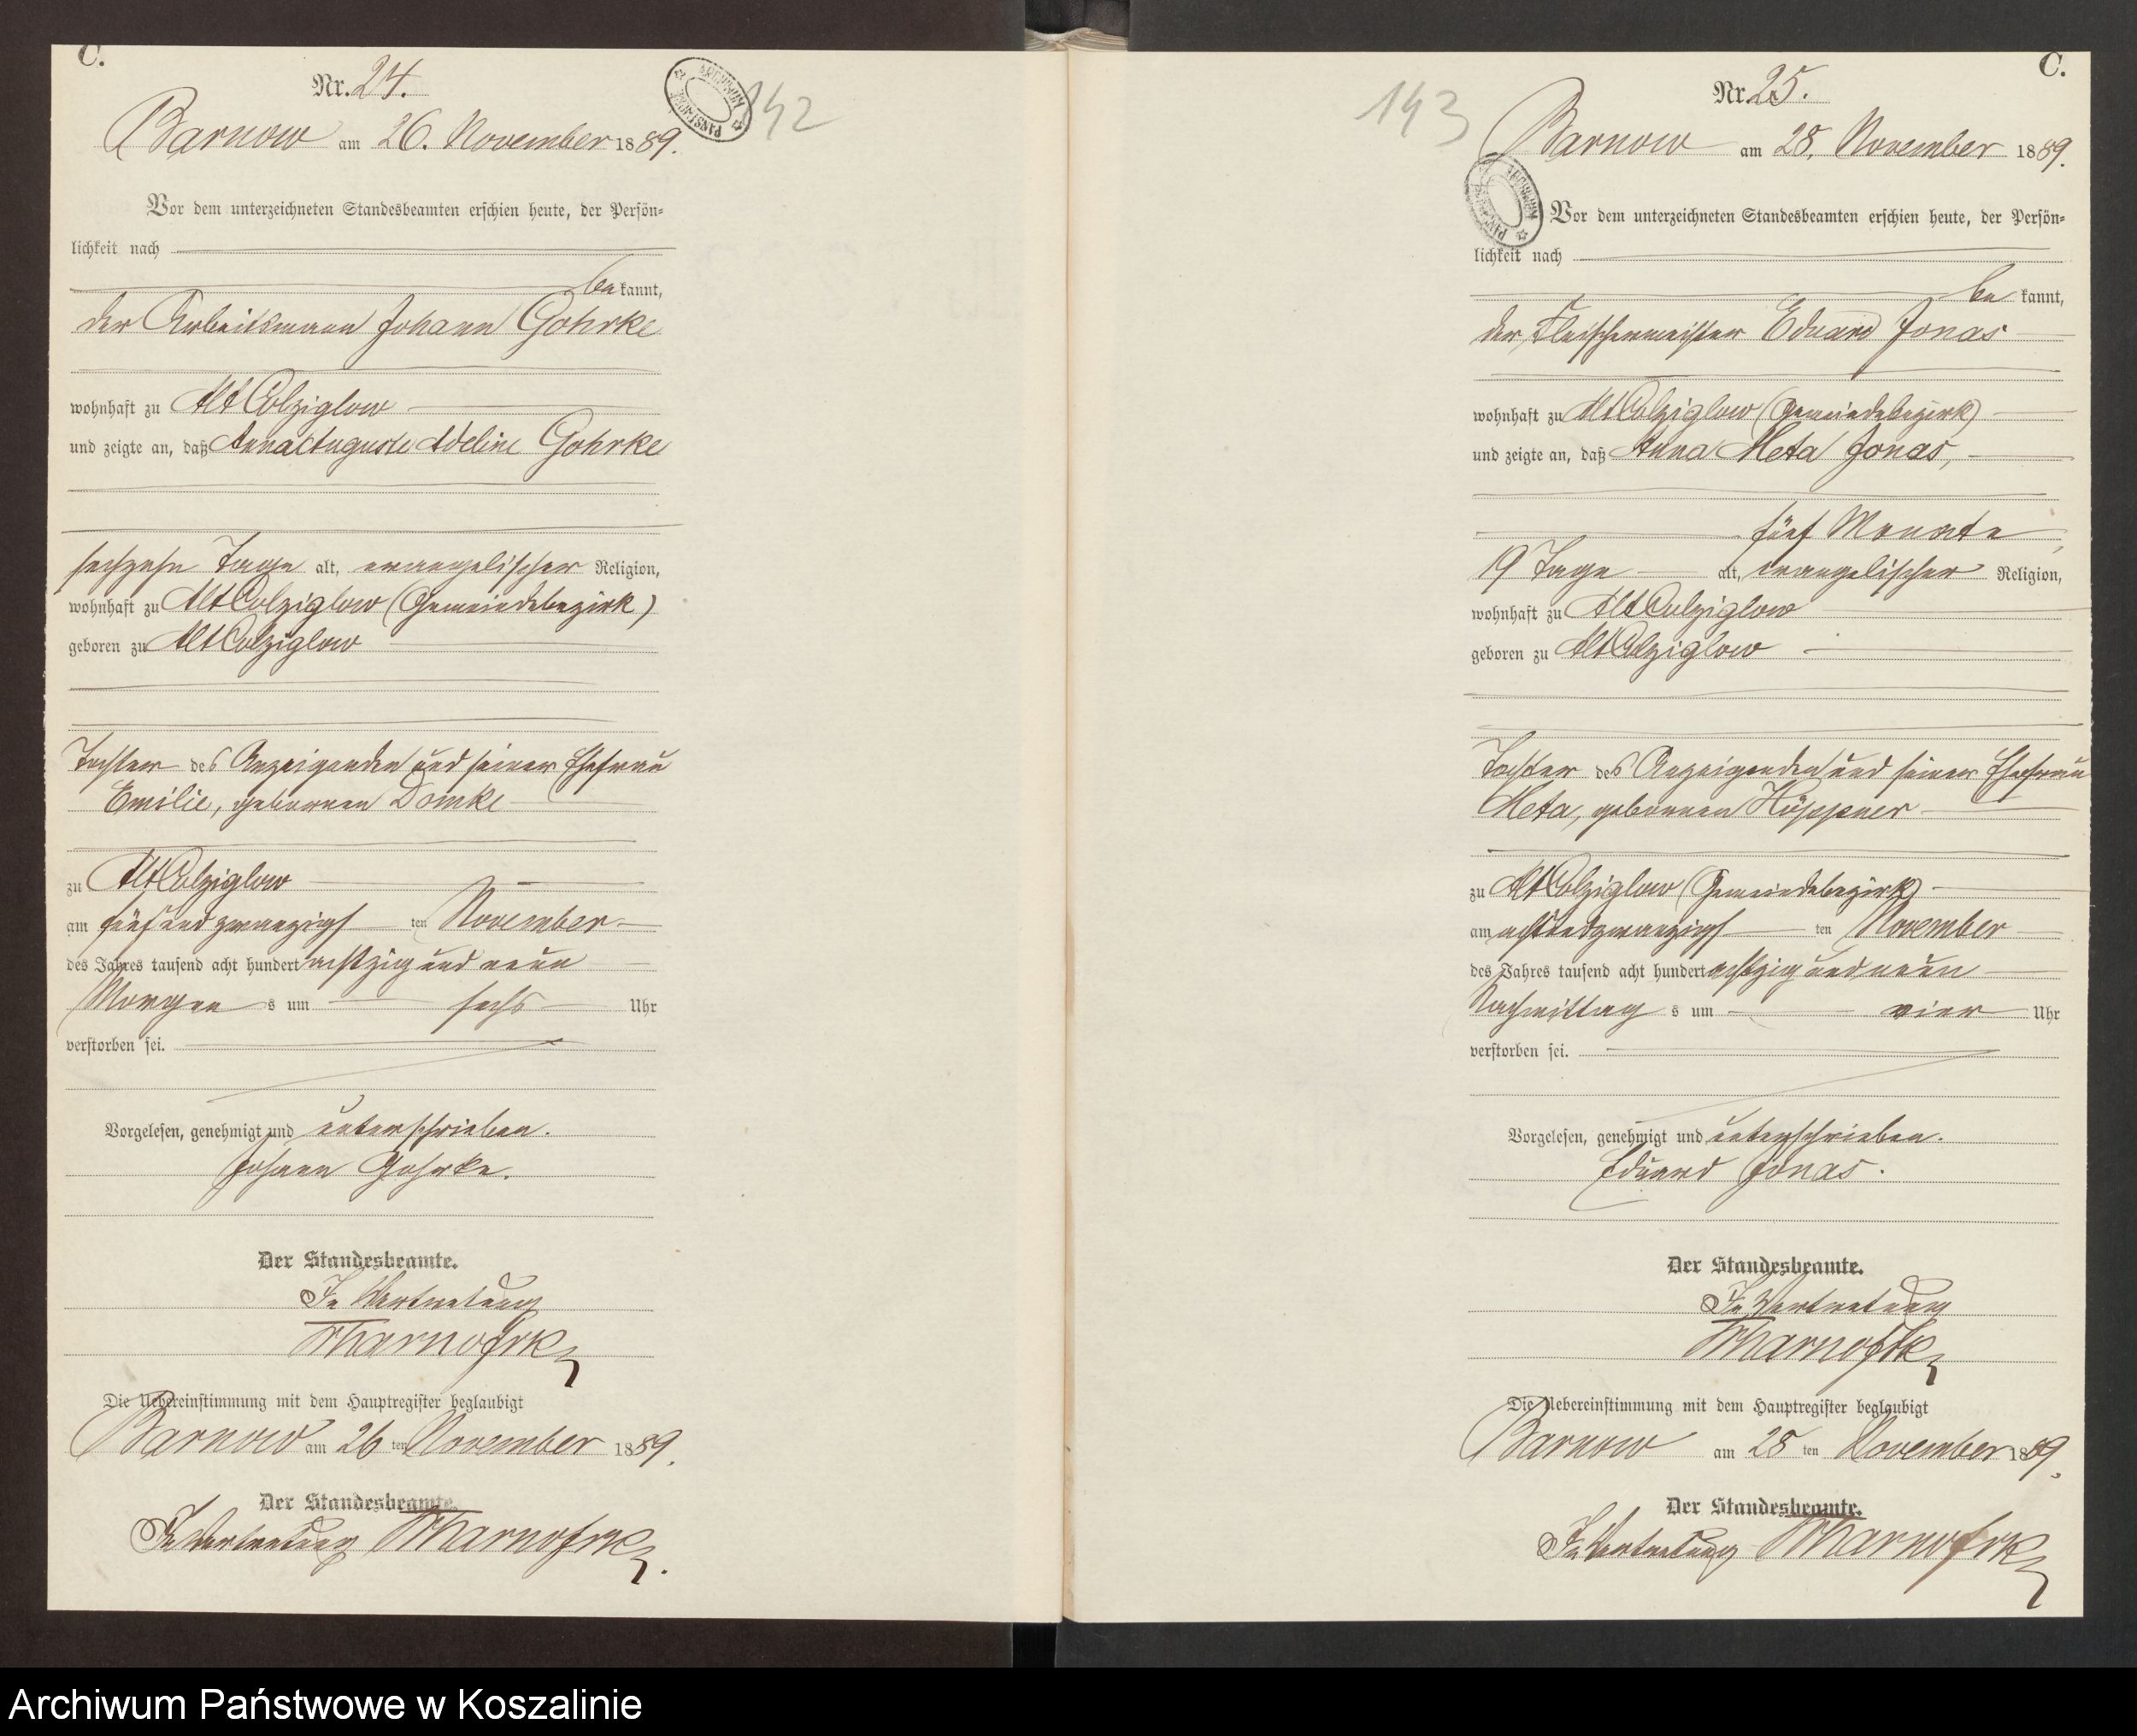 C.
Nr. 24.
142
Barnow am 26. November 1889.
Vor dem unterzeichneten Standesbeamten erschien heute, der Persön-
lichkeit nach
be kannt,
der Arbeitsmann Johann Gohrke
wohnhaft zu Alt Colziglow
und zeigte an, daß Anna Auguste Adeline Gohrke
sechzehn Tage alt, evangelischer Religion,
wohnhaft zu Alt Colziglow (Gemeindebezirk)
geboren zu Alt Colziglow
Tochter des Anzeigenden und seiner Ehefrau
Emilie, geborenen Domke
zu Alt Colziglow
am fünfundzwanzigsten November
des Jahres tausend acht hundert achtzig und neun
Morgens um sechs Uhr
verstorben sei.
Vorgelesen, genehmigt und unterschrieben.
Johann Gohrke.
Der Standesbeamte.
In Vertretung
Die Uebereinstimmung mit dem Hauptregister beglaubigt
Barnow am 26 ten November 1889.
Der Standesbeamte.
In Vertretung
C.
Nr. 25.
143
Barnow am 28. November 1889.
Vor dem unterzeichneten Standesbeamten erschien heute, der Persön-
lichkeit nach
be kannt,
der Fleischermeister Eduard Jonas
wohnhaft zu Alt Colziglow (Gemeindebezirk)
und zeigte an, daß Anna Meta Jonas,
fünf Monate
19 Tage alt, evangelischer Religion,
wohnhaft zu Alt Colziglow
geboren zu Alt Colziglow
Tochter des Anzeigenden und seiner Ehefrau
Meta, geborenen Höppner
zu Alt Colziglow (Gemeindebezirk)
am achtundzwanzigsten November
des Jahres tausend acht hundert achtzig und neun
Nachmittags um vier Uhr
verstorben sei.
Vorgelesen, genehmigt und unterschrieben.
Eduard Jonas.
Der Standesbeamte.
In Vertretung
Die Uebereinstimmung mit dem Hauptregister beglaubigt
Barnow am 28 ten November 1889.
Der Standesbeamte.
In Vertretung
Archiwum Państwowe w Koszalinie